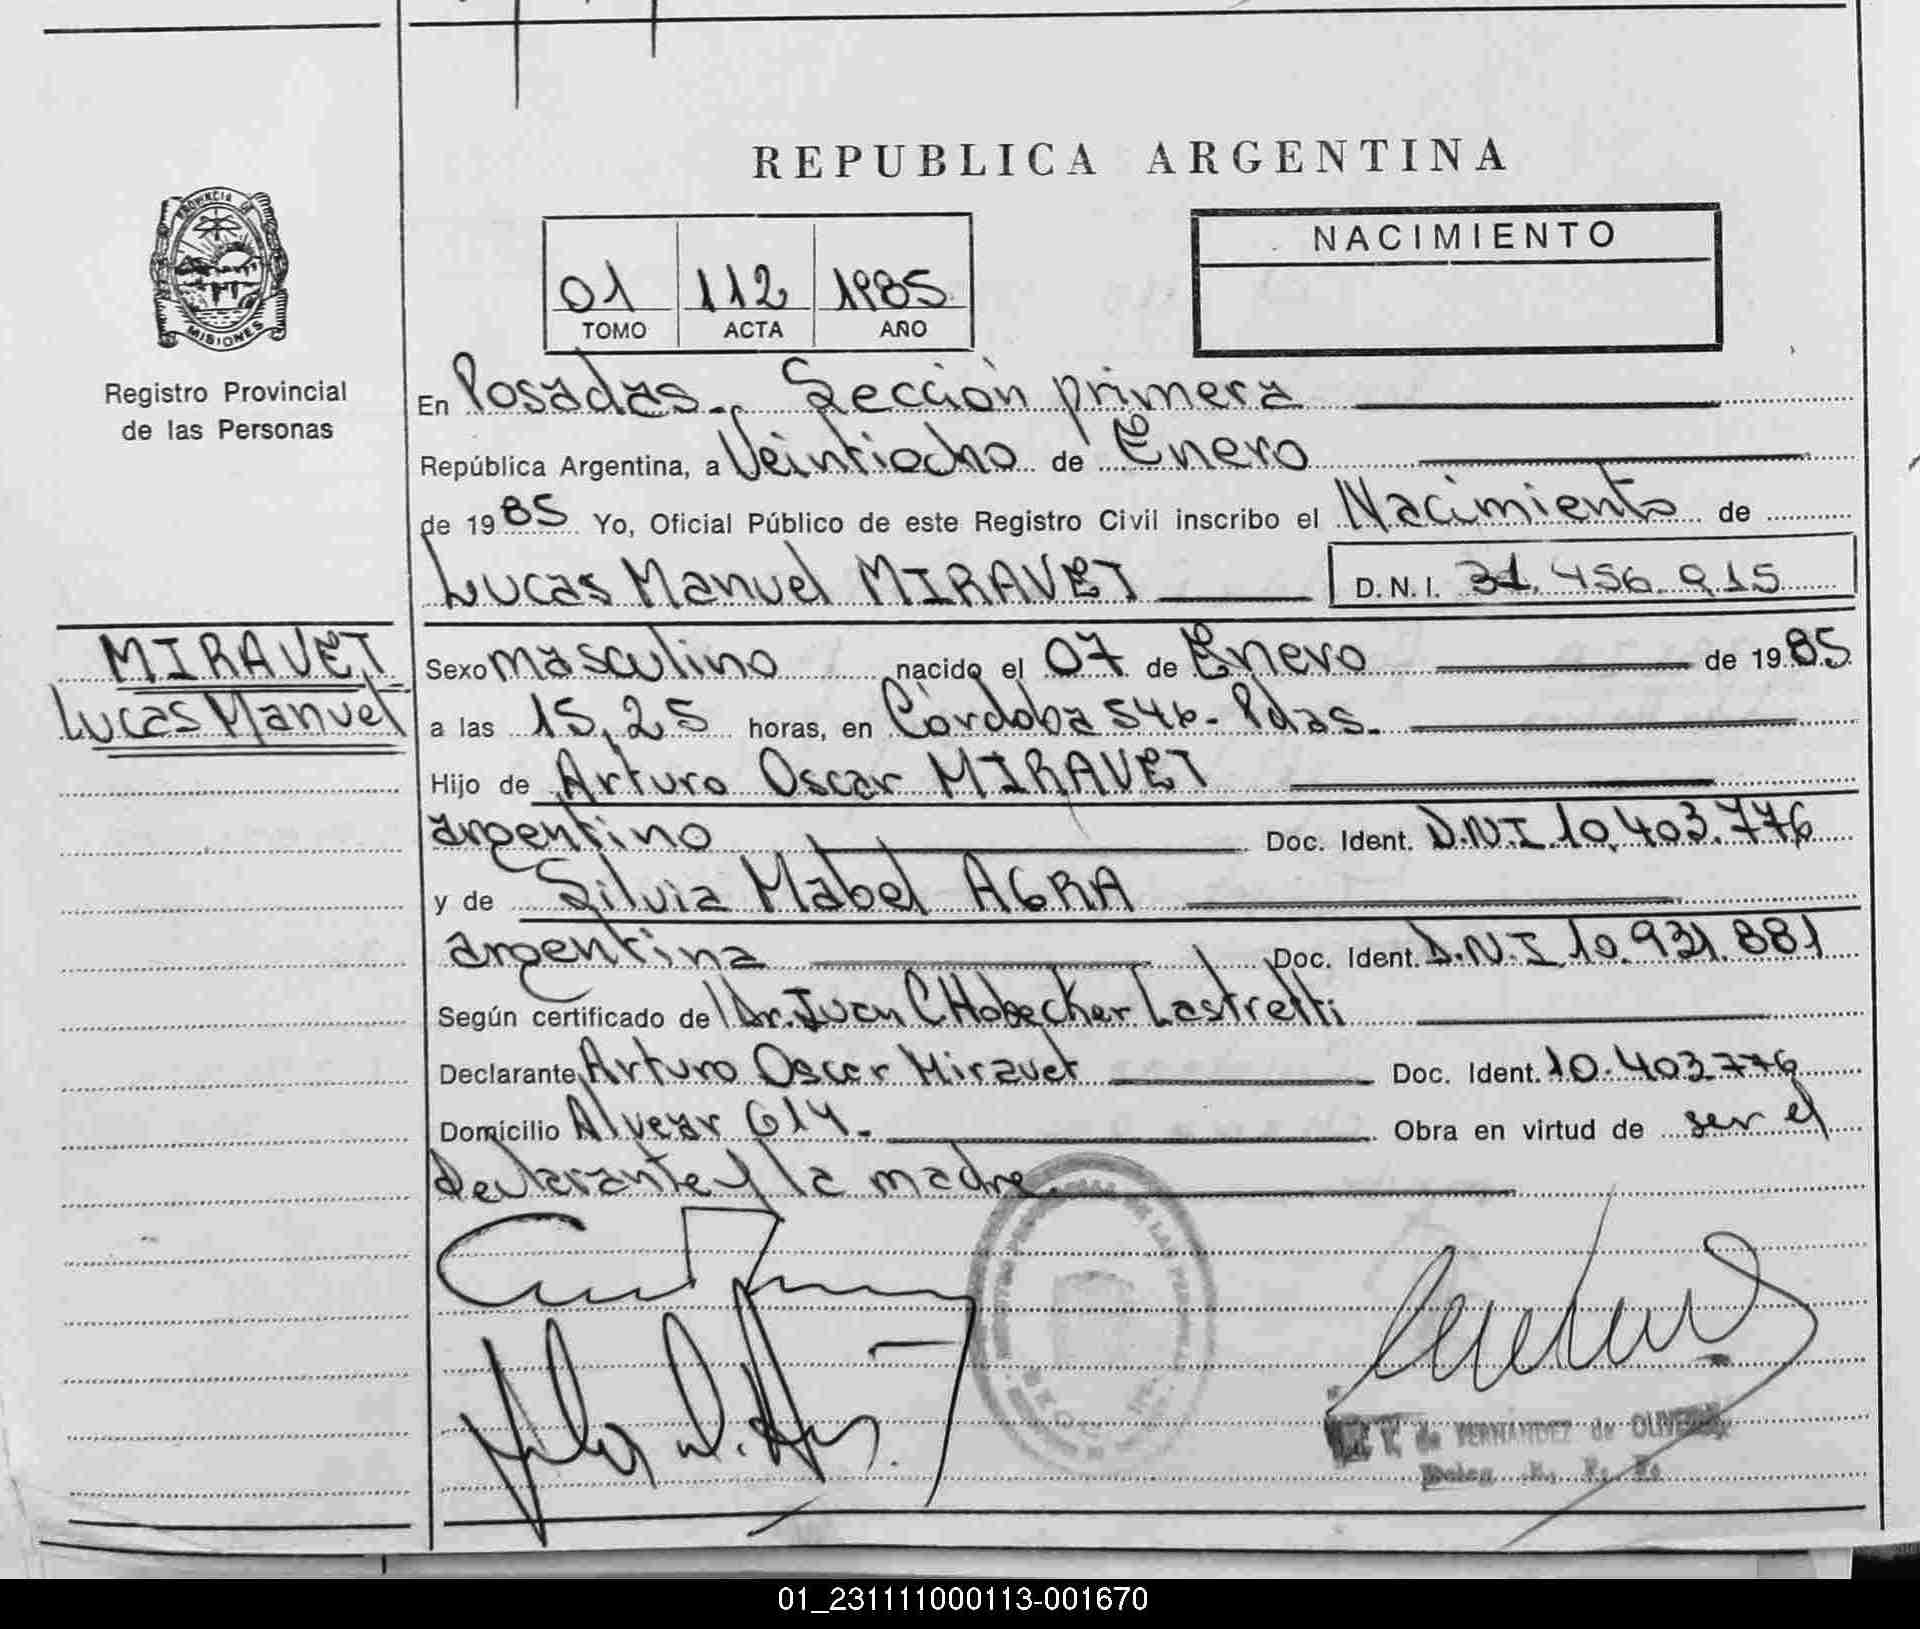 REPUBLICA ARGENTINA
PROVINCIA DE
MISIONES
Registro Provincial
de las Personas
01 112 1985
TOMO ACTA AÑO
NACIMIENTO
En Posadas.- Sección primera
República Argentina, a Veintiocho de Enero
de 1985 Yo, Oficial Público de este Registro Civil inscribo el Nacimiento de
Lucas Manuel MIRAVET D.N.I. 31.456.915
MIRAVET
Lucas Manuel
Sexo masculino nacido el 07 de Enero de 1985
a las 15,25 horas, en Córdoba 546- Pdas.
Hijo de Arturo Oscar MIRAVET
argentino Doc. Ident. D.N.I 10.403.776
y de Silvia Mabel AGRA
argentina Doc. Ident. D.N.I 10.931.881
Según certificado de Dr. Juan C Hobecker Lastretti
Declarante Arturo Oscar Miravet Doc. Ident. 10.403.776
Domicilio Alvear 614.- Obra en virtud de ser el
declarante y la madre.
de FERNANDEZ de OLIVEIRA
01_231111000113-001670